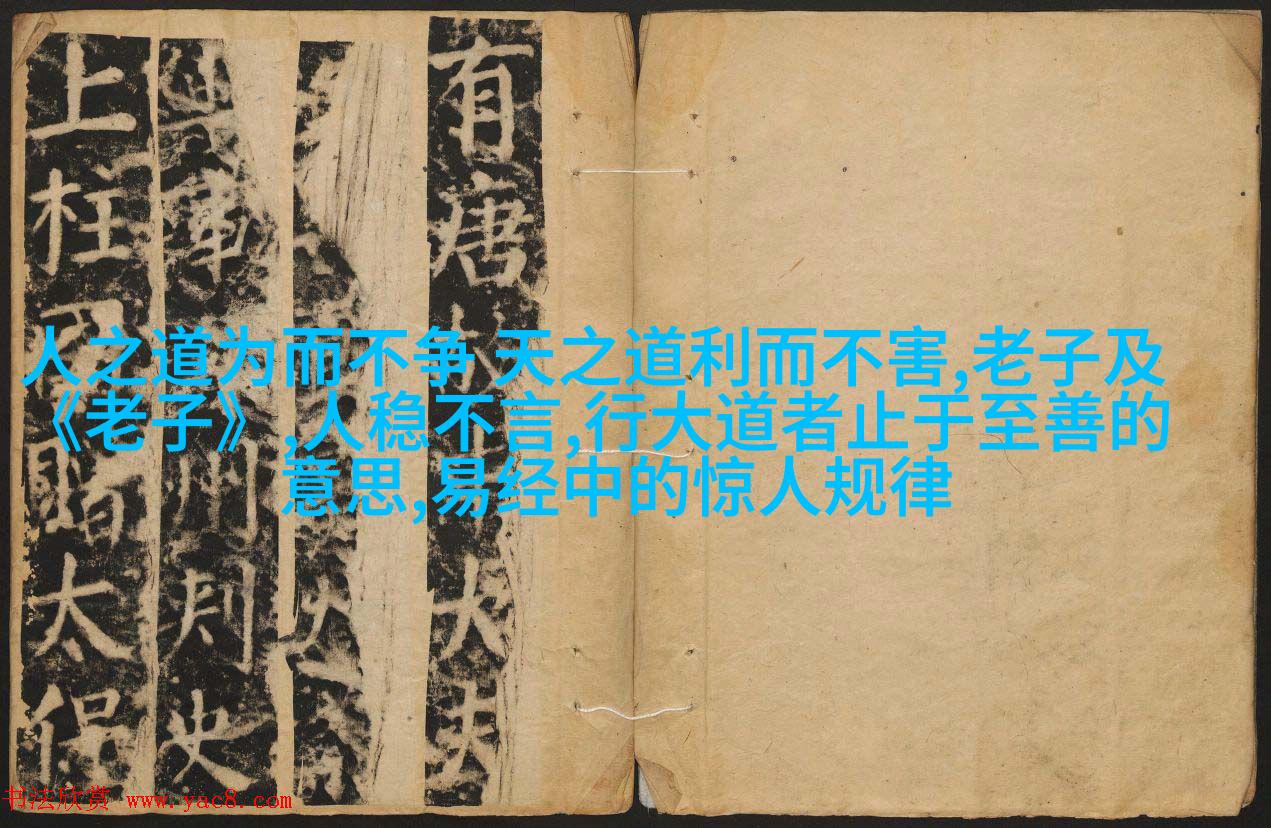 有唐大夫
軍州刺史
上柱國贈太保
人之道为而不争 天之道利而不害,老子及
《老子》,人稳不言,行大道者止于至善的
意思,易经中的惊人规律
书法欣赏 www.yac8.com